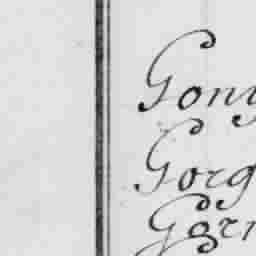 Gony
Gorg
Garn